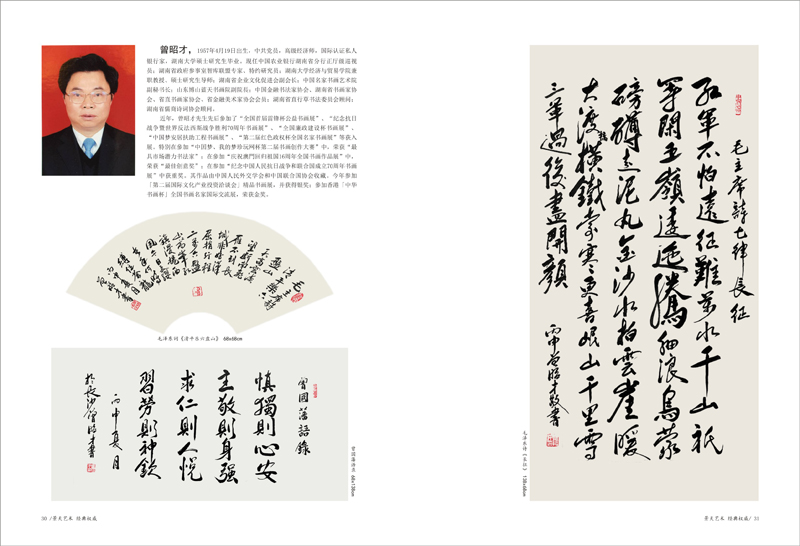 曾昭才，1957年4月19日出生，中共党员，高级经济师，国际认证私人
银行家，湖南大学硕士研究生毕业，现任中国农业银行湖南省分行正厅级巡视
员；湖南省政府参事室智库联盟专家、特约研究员；湖南大学经济与贸易学院兼
职教授、硕士研究生导师；湖南省企业文化促进会副会长；中国名家书画艺术院
副秘书长；山东博山蓝天书画院副院长；中国金融书法家协会、湖南省书画家协
会、省直书画家协会、省金融美术家协会会员；湖南省直行草书法委员会顾问；
湖南省儒商诗词协会顾问。
近年来，曾昭才先生先后参加了“全国首届雷锋杯公益书画展”、“纪念抗日
战争暨世界反法西斯战争胜利70周年书画展”、“全国廉政建设杯书画展”、
“中国梦安居扶助工程书画展”、“第二届红色政权杯全国名家书画展”等获入
展。特别在参加“中国梦、我的梦珍玩网杯第二届书画创作大赛”中，荣获“最
具市场潜力书法家”；在参加“庆祝澳门回归祖国16周年全国书画作品展”中，
荣获“最佳创意奖”；在参加“纪念中国人民抗日战争和联合国成立70周年书画
展”中获重奖。其作品由中国人民外交学会和中国联合国协会收藏。今年参加
「第二届国际文化产业投资洽谈会」精品书画展，并获得银奖；参加香港「中华
书画杯」全国书画名家国际交流展，荣获金奖。
毛泽东词《清平乐六盘山》 68x68cm
曾國藩語錄
慎獨則心安
主敬則身强
求仁則人悦
習勞則神欽
丙申夏月
於長沙曾昭才書
曾国藩语录 68x138cm
毛主席詩七律長征
紅軍不怕遠征難萬水千山祇
等閑五嶺逶迤騰細浪烏蒙
磅礴走泥丸金沙水拍雲崖暖
大渡橋横鐵索寒更喜岷山千里雪
三軍過後盡開顔
丙申曾昭才敬書
毛泽东诗《长征》 138x68cm
30 /景天艺术 经典权威
景天艺术 经典权威/ 31